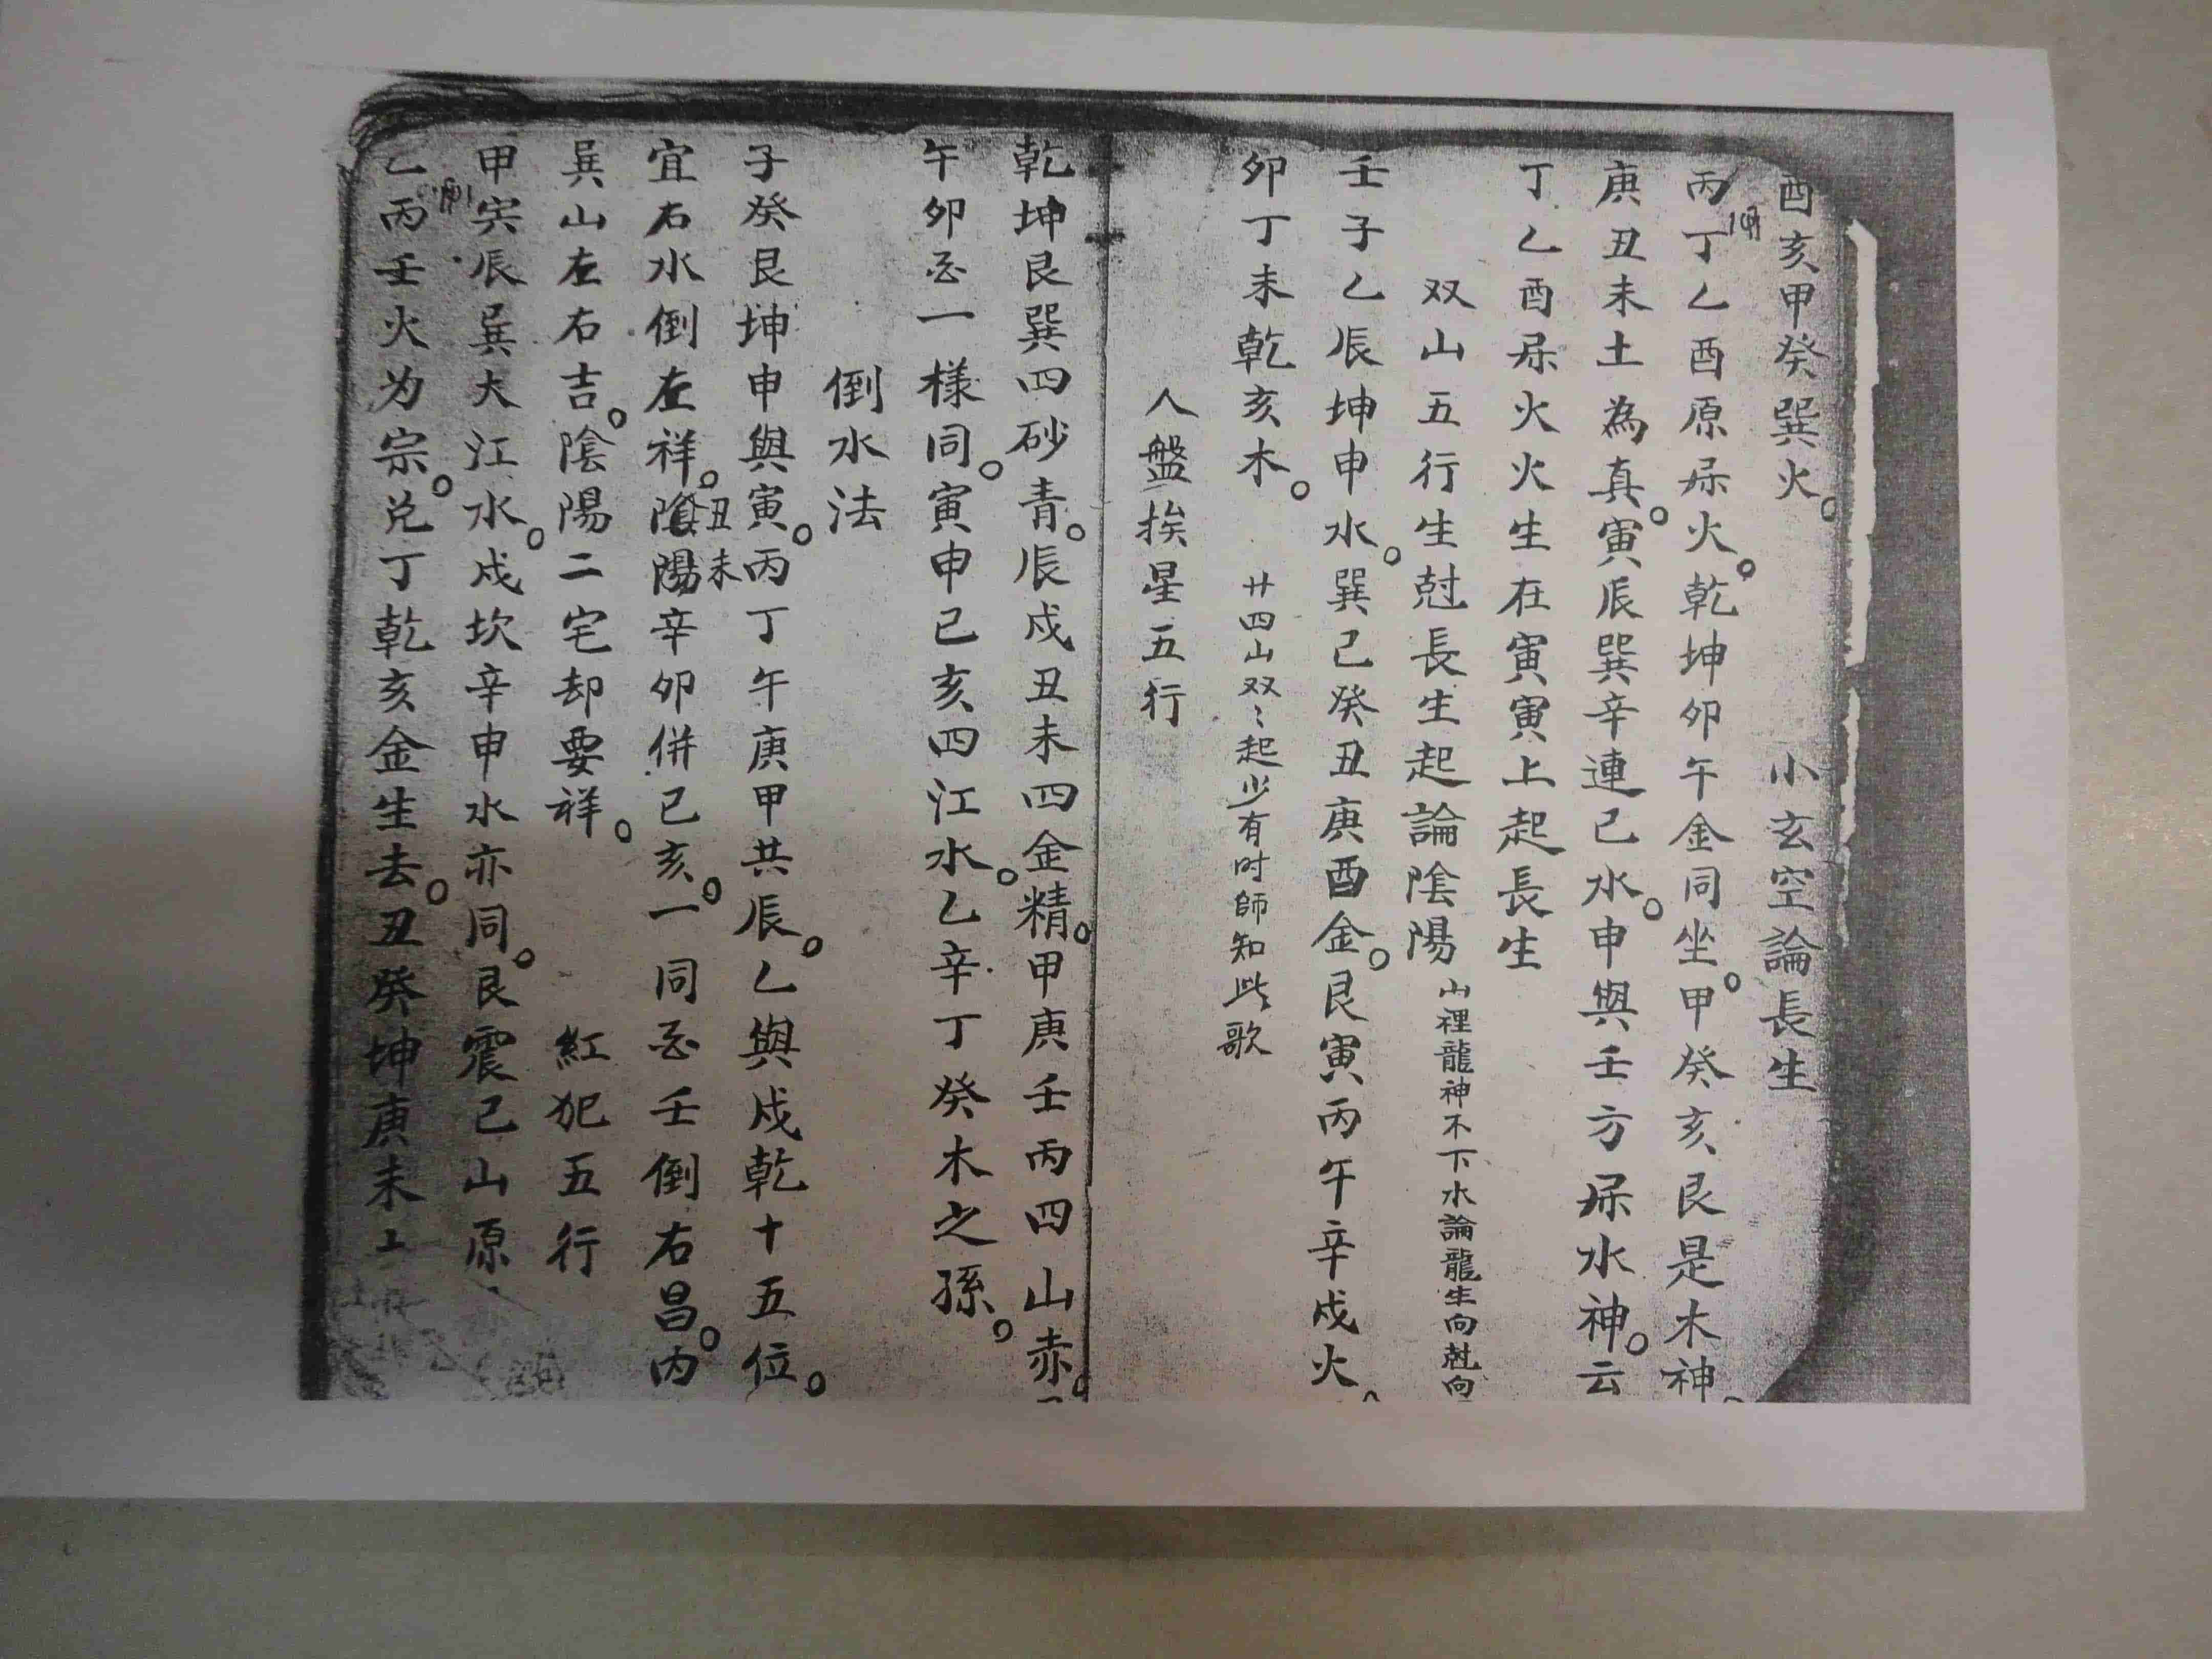 酉亥甲癸巽火。　小玄空論長生
丙丁乙酉原屎火。乾坤卯午金同坐。甲癸亥艮是木神
庚丑未土為真。寅辰巽辛連巳水。申與壬方屎水神。云
丁乙酉屎火火生在寅寅上起長生
双山五行生尅長生起論陰陽 山裡龍神不下水論龍生向尅向
壬子乙辰坤申水。巽已癸丑庚酉金。艮寅丙午辛戍火
卯丁未乾亥木。 廿四山双〻起少有时師知此歌
人盤挨星五行
乾坤艮巽四砂青。辰戍丑未四金精。甲庚壬丙四山赤。
午卯酉一樣同。寅申已亥四江水。乙辛丁癸木之孫。
倒水法
子癸艮坤申與寅。丙丁午庚甲共辰。乙與戍乾十五位。
丑未
宜右水倒左祥。陰陽辛卯併已亥。一同酉壬倒右昌。内
巽山左右吉。陰陽二宅却要祥。　紅犯五行
甲寅辰巽大江水。戍坎辛申水亦同。艮震已山原
乙丙壬火为宗。兑丁乾亥金生去。丑癸坤庚未